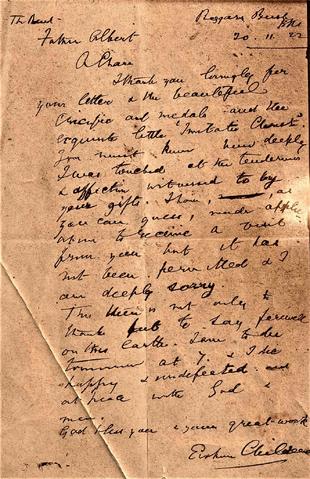 The Revd. Beggars Bush
Father Albert 20.11.22
A Chara
Thank you lovingly for
your letter & the beautiful
Crucifix and medals and the
exquisite little "Imitatio Christi"
You must know how deeply
I was touched at the tenderness
& affection witnessed to by
your gifts. I have, as
you can guess, made applic-
ation to receive a visit
from you but it has
not been permitted & I
am deeply sorry.
This then is not only to
thank but to say farewell
on this Earth. I am to die
tomorrow at 7. & I die
happy & undefeated and
at peace with God &
men.
God bless you & your great work
Erskine Childers